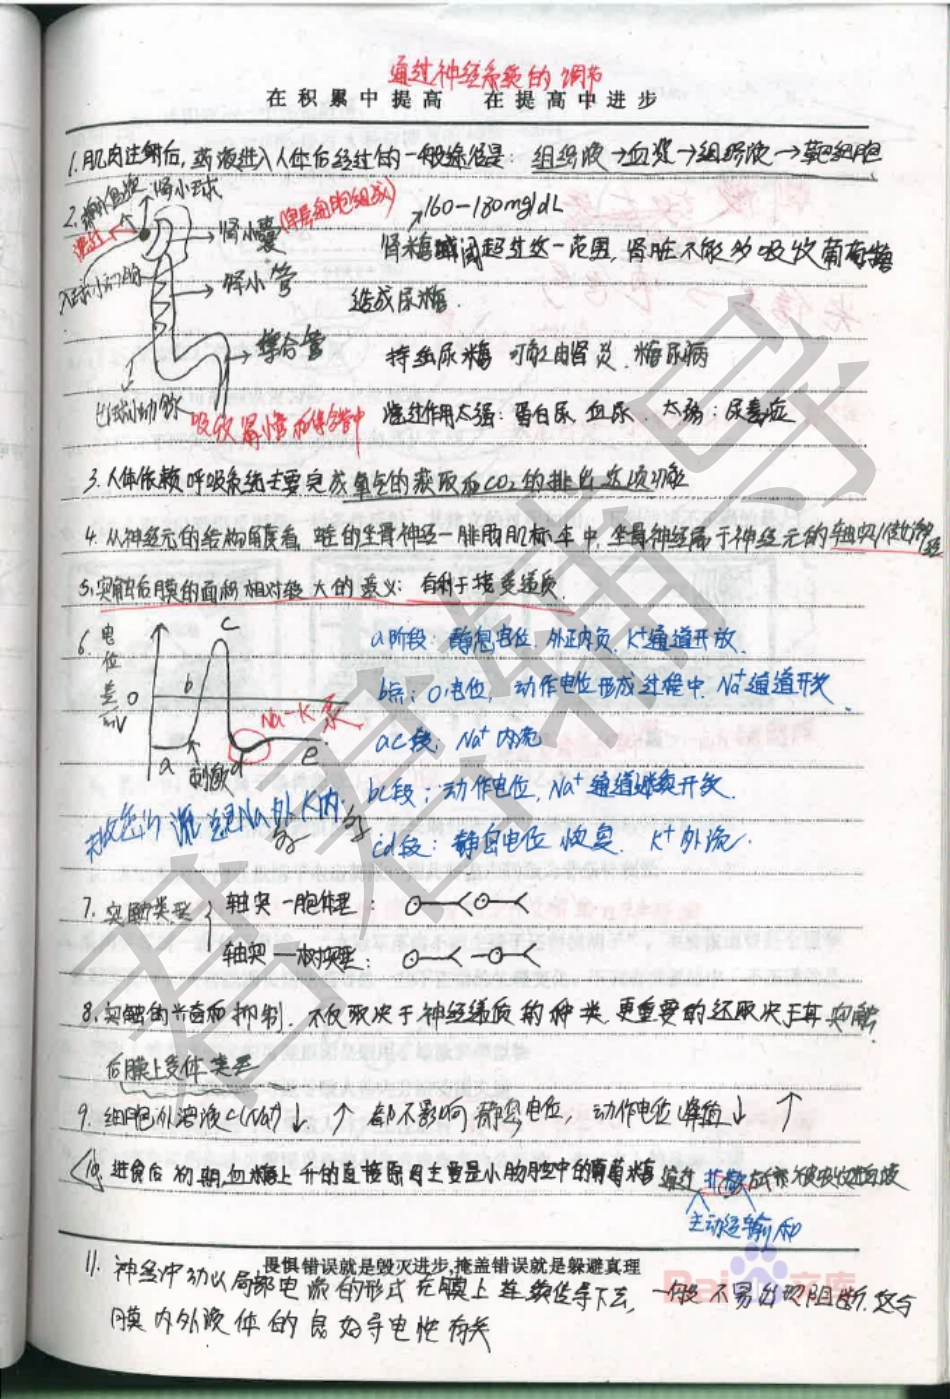 通过神经系统的调节
在积累中提高 在提高中进步
1.肌肉注射后,药液进入人体后经过的一般途径是:组织液→血浆→组织液→靶细胞
2.
肾小球
滤过
肾小囊(单层细胞组成)
入球小动脉
肾小管
集合管
出球小动脉
吸收
160-180mg/dL
肾糖阈超过这一范围,肾脏不能多吸收葡萄糖
造成尿糖.
持续尿糖 可能由肾炎.糖尿病
滤过作用太强:蛋白尿.血尿. 太弱:尿毒症
3.人体依赖呼吸系统主要完成氧气的获取和CO2的排出这项功能
4.从神经元的结构角度看,蛙的坐骨神经-腓肠肌标本中,坐骨神经属于神经元的轴突/传出神经
5.突触后膜的面积相对较大的意义:有利于接受递质.
6.
电位差 mV
0
a
b
c
d
e
刺激
Na-K泵
a阶段:静息电位,外正内负.K+通道开放.
b点:0电位,动作电位形成过程中,Na+通道开放.
ac段:Na+内流
bc段:动作电位,Na+通道继续开放.
cd段:静息电位恢复. K+外流.
7.突触类型
轴突-胞体型:
轴突-树突型:
8.突触的兴奋和抑制.不仅取决于神经递质的种类.更重要的还取决于其突触
后膜上受体类型
9.细胞外溶液c(Na+)↓、↑ 都不影响静息电位,动作电位峰值↓、↑
10.进食后初期,血糖上升的直接原因主要是小肠肠腔中的葡萄糖通过
主动运输
畏惧错误就是毁灭进步,掩盖错误就是躲避真理
11.神经冲动以局部电流的形式在膜上连续传导下去,一般不易出现阻断.这与
膜内外液体的良好导电性有关
君君辅导
Bai 文库